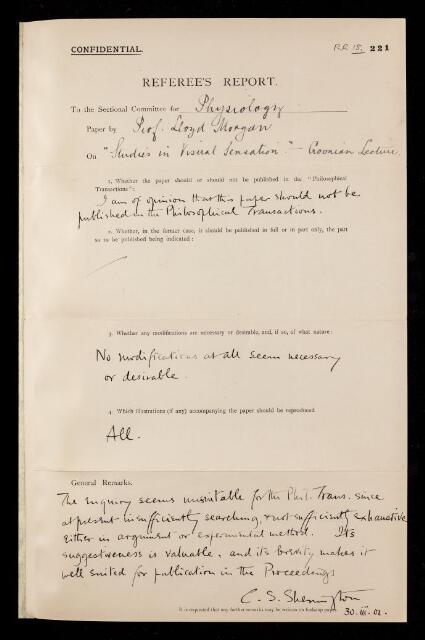 CONFIDENTIAL.
RR 15. 221
REFEREE'S REPORT.
To the Sectional Committee for Physiology
Paper by Prof. Lloyd Morgan
On "Studies in Visual Sensation" — Croonian Lecture.
1. Whether the paper should or should not be published in the "Philosophical
Transactions":
I am of opinion that this paper should not be
published in the Philosophical Transactions.
2. Whether, in the former case, it should be published in full or in part only, the part
so to be published being indicated:
3. Whether any modifications are necessary or desirable, and, if so, of what nature:
No modifications at all seem necessary
or desirable.
4. Which illustrations (if any) accompanying the paper should be reproduced
All.
General Remarks.
The enquiry seems unsuitable for the Phil. Trans. since
at present insufficiently searching, & not sufficiently exhaustive
either in argument or experimental method. Its
suggestiveness is valuable, and its brevity makes it
well suited for publication in the Proceedings
C. S. Sherrington
It is requested that any further remarks may be written on foolscap paper.
30. III. 01.